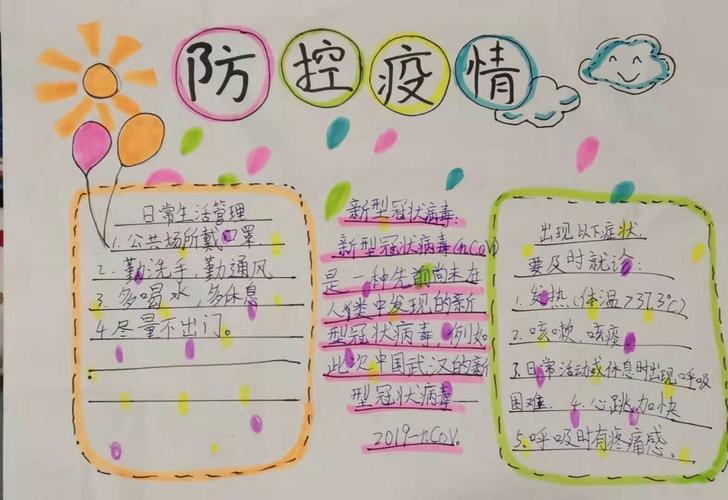 防控疫情
日常生活管理
1.公共场所戴口罩.
2.勤洗手,勤通风
3.多喝水,多休息
4.尽量不出门。
新型冠状病毒:
新型冠状病毒(nCoV)
是一种先前尚未在
人类中发现的新
型冠状病毒.例如
此次中国武汉的新
型冠状病毒
2019-nCoV.
出现以下症状,
要及时就诊:
1.发热(体温>37.3℃)
2.咳嗽.咳痰.
3.日常活动或休息时出现呼吸
困难. 4.心跳加快
5.呼吸时有疼痛感.